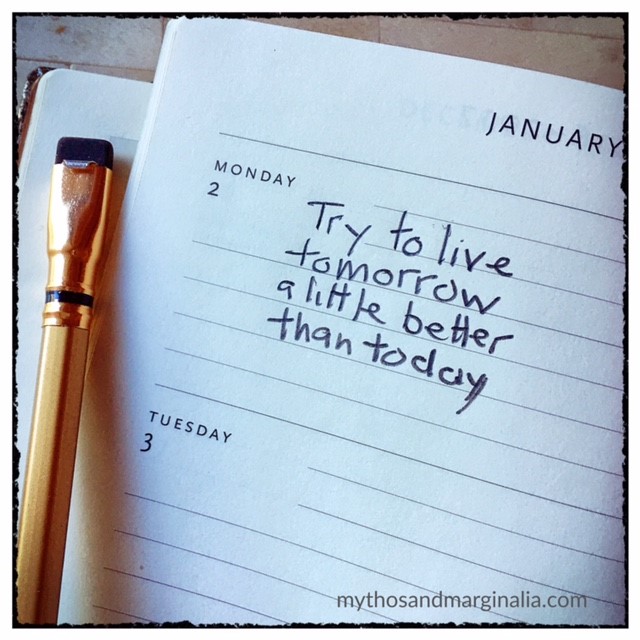 JANUARY
MONDAY
2
Try to live
tomorrow
a little better
than today
TUESDAY
3
mythosandmarginalia.com